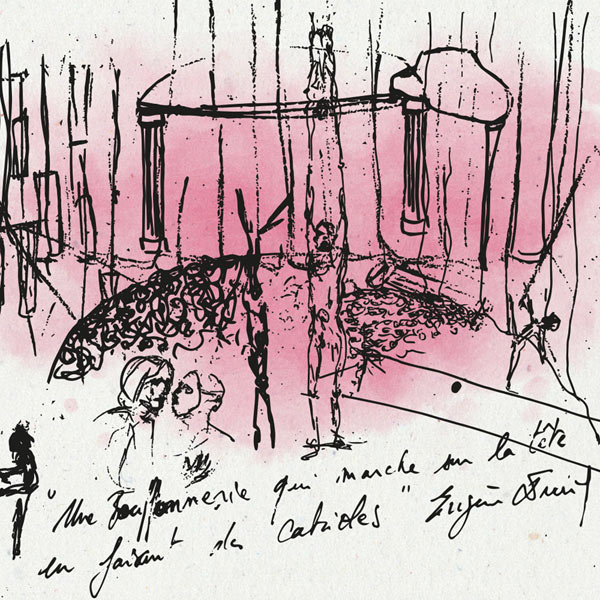 "Une Bouffonnerie qui marche sur la tête
en faisant des cabrioles" Eugène Durif